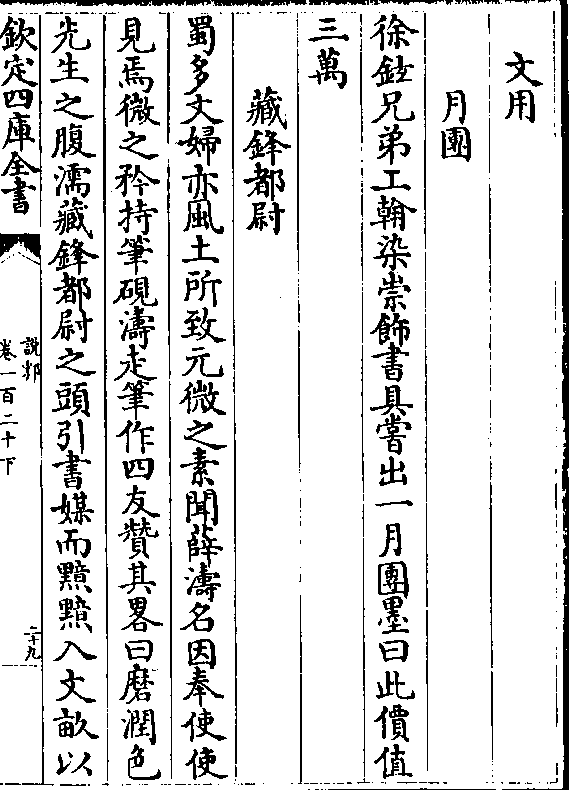 文用
月團
徐鉉兄弟工翰染崇飾書具嘗出一月團墨曰此價值
三萬
藏鋒都尉
蜀多文婦亦風土所致元微之素聞薛濤名因奉使使
見焉微之矜持筆硯濤走筆作四友贊其畧曰磨潤色
先生之腹濡藏鋒都尉之頭引書媒而黯黯入文畝以
欽定四庫全書
說郛
卷一百二十下
二十九